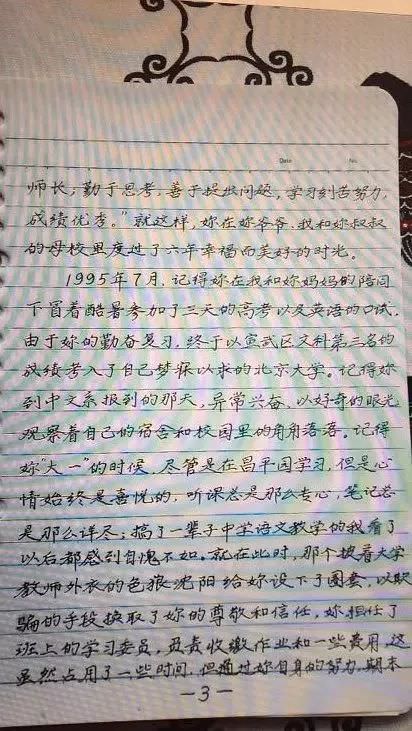 Date No.
师长；勤于思考，善于提出问题，学习刻苦努力，
成绩优秀。”就这样，妳在妳爷爷、我和妳叔叔
的母校里度过了六年幸福而美好的时光。
1995年7月，记得妳在我和妳妈妈的陪同
下冒着酷暑参加了三天的高考以及英语的口试，
由于妳的勤奋复习，终于以宣武区文科第三名的
成绩考入了自己梦寐以求的北京大学。记得妳
到中文系报到的那天，异常兴奋、以好奇的眼光
观察着自己的宿舍和校园里的角角落落。记得
妳“大一”的时候，尽管是在昌平园学习，但是心
情始终是喜悦的，听课总是那么专心，笔记总
是那么详尽；搞了一辈子中学语文教学的我看了
以后都感到自愧不如。就在此时，那个披着大学
教师外衣的色狼沈阳给妳设下了圈套，以欺
骗的手段换取了妳的尊敬和信任，妳担任了
班上的学习委员，负责收缴作业和一些费用，这
虽然占用了一些时间，但通过妳自身的努力，期末
—3—